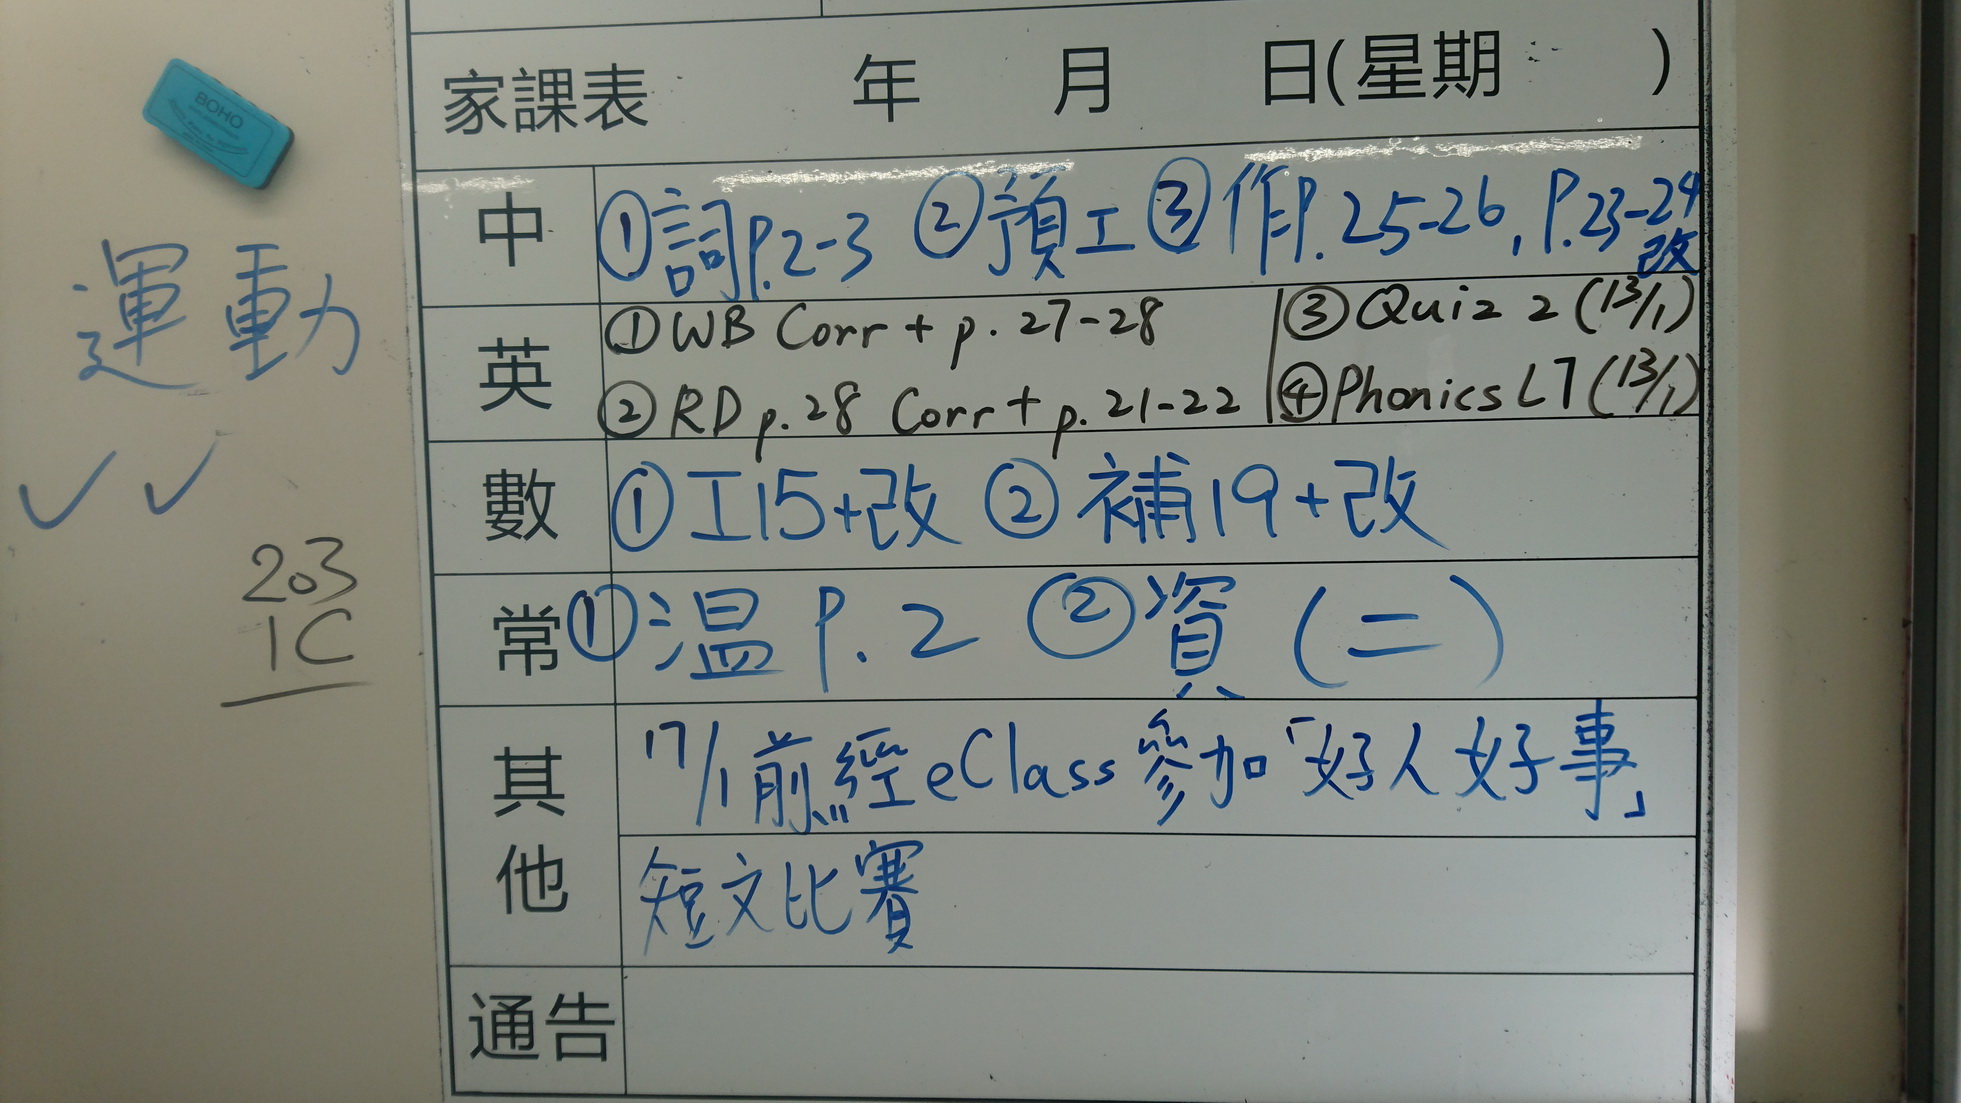 BOHO
家課表 年 月 日(星期 )
中 ①詞P.2-3 ②預工 ③作P.25-26, P.23-24
改
英 ①WB Corr + p.27-28 ③Quiz 2 (13/1)
②RD p.28 Corr + p.21-22 ④Phonics L7 (13/1)
數 ①工15+改 ②補19+改
常 ①温 P.2 ②資(二)
其他 17/1前經eClass參加「好人好事」
短文比賽
通告
運動
203
1C